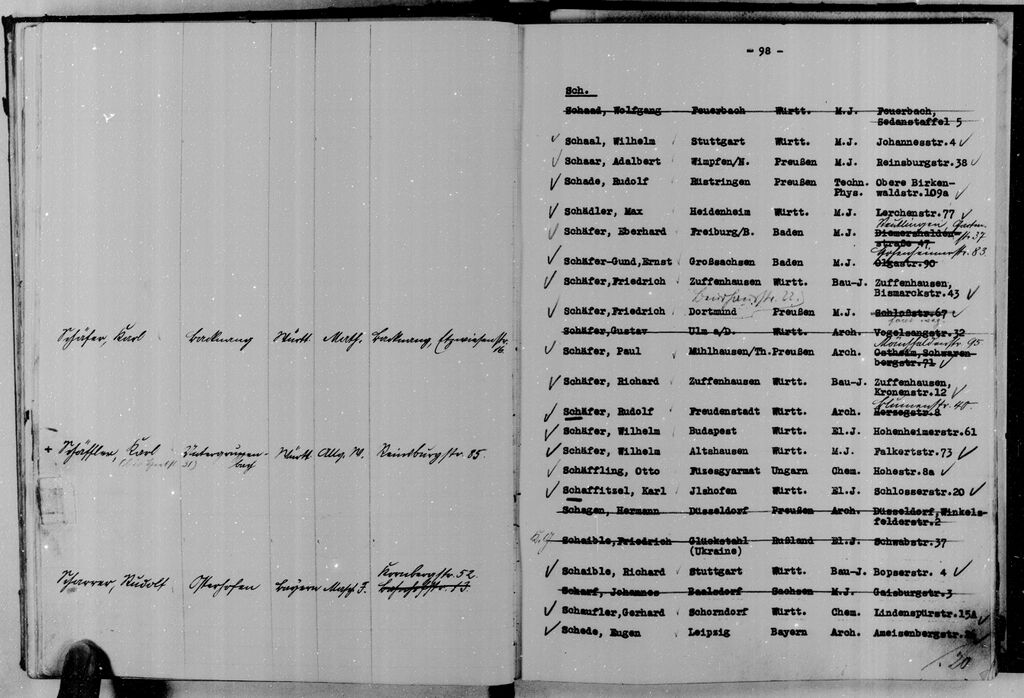 Schäfer, Karl Backnang Württ. Math. Backnang, Etzwiesenstr.
16.
+ Schäffler, Karl Untergruppen- Württ. Allg. W. Reinsburgstr. 85.
bach
Kornbergstr. 52.
Scharrer, Rudolf Osterhofen Bayern Masch. I. Bahnhofstr. 13.
- 98 -
Sch.
Schaad, Wolfgang Feuerbach Württ. M.J. Feuerbach,
Sedanstaffel 5
Schaal, Wilhelm Stuttgart Württ. M.J. Johannesstr.4
Schaar, Adalbert Wimpfen/N. Preußen M.J. Reinsburgstr.38
Schade, Rudolf Rüstringen Preußen Techn. Obere Birken-
Phys. waldstr.109a
Schädler, Max Heidenheim Württ. M.J. Lerchenstr.77
Reutlingen, Garten-
Schäfer, Eberhard Freiburg/B. Baden M.J. Diemershalden- str. 37
straße 47
Schäfer-Gund,Ernst Großsachsen Baden M.J. Olgastr.90 Hohenheimerstr. 83.
Schäfer,Friedrich Zuffenhausen Württ. Bau-J. Zuffenhausen,
Bismarckstr.43
Schäfer,Friedrich Dortmund Preußen M.J. Schloßstr.67
Schäfer,Gustav Ulm a/D. Württ. Arch. Vogelsangstr.32
Mönchhaldenstr. 95
Schäfer, Paul Mühlhausen/Th.Preußen Arch. Ostheim,Schwaren-
bergstr.71
Schäfer, Richard Zuffenhausen Württ. Bau-J. Zuffenhausen,
Kronenstr.12
Blumenstr. 40.
Schäfer, Rudolf Freudenstadt Württ. Arch. Herzogstr.8
Schäfer, Wilhelm Budapest Württ. El.J. Hohenheimerstr.61
Schäfer, Wilhelm Altshausen Württ. M.J. Falkertstr.73
Schäffling, Otto Füzesgyarmat Ungarn Chem. Hohestr.8a
Schaffitzel, Karl Jlshofen Württ. El.J. Schlosserstr.20
Schagen, Hermann Düsseldorf Preußen Arch. Düsseldorf,Winkels-
felderstr.2
Schaible,Friedrich Glückstahl Rußland El.J. Schwabstr.37
(Ukraine)
Schaible, Richard Stuttgart Württ. Bau-J. Bopserstr. 4
Scharf, Johannes Baalsdorf Sachsen M.J. Gaisburgstr.3
Schaufler,Gerhard Schorndorf Württ. Chem. Lindenspürstr.15A
Schede, Eugen Leipzig Bayern Arch. Ameisenbergstr.
20